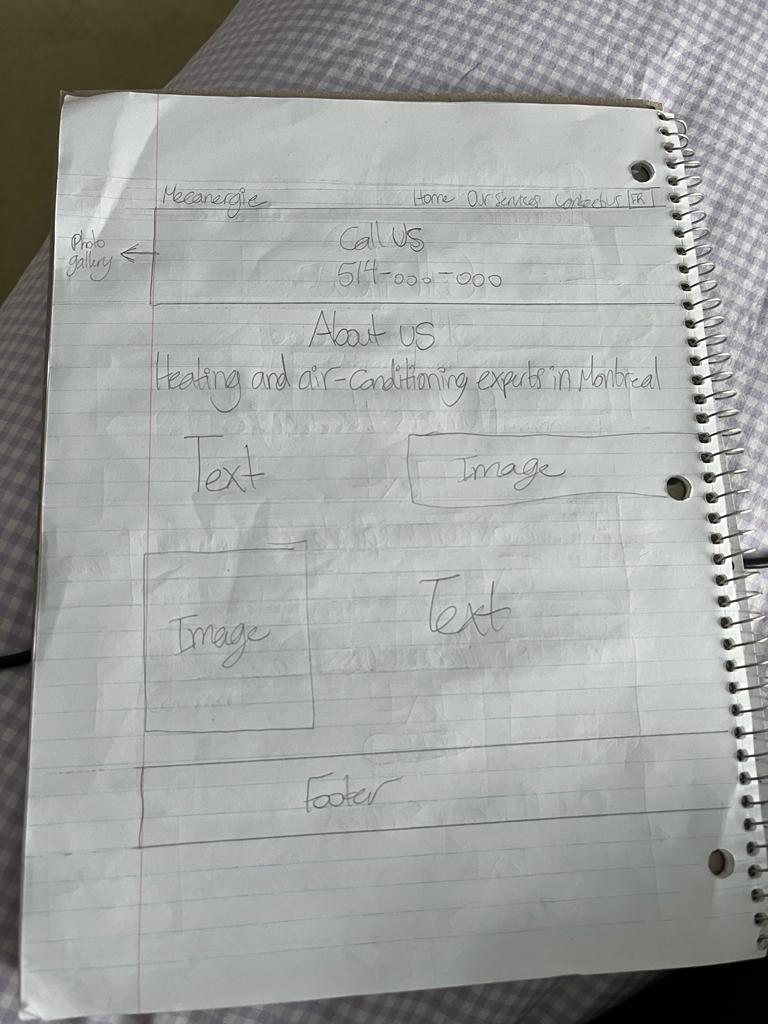 Mecanergie Home Our services Contact us FR
Photo gallery
Call US
514-000-000
About us
Heating and air-conditioning experts in Montreal
Text
Image
Image
Text
Footer